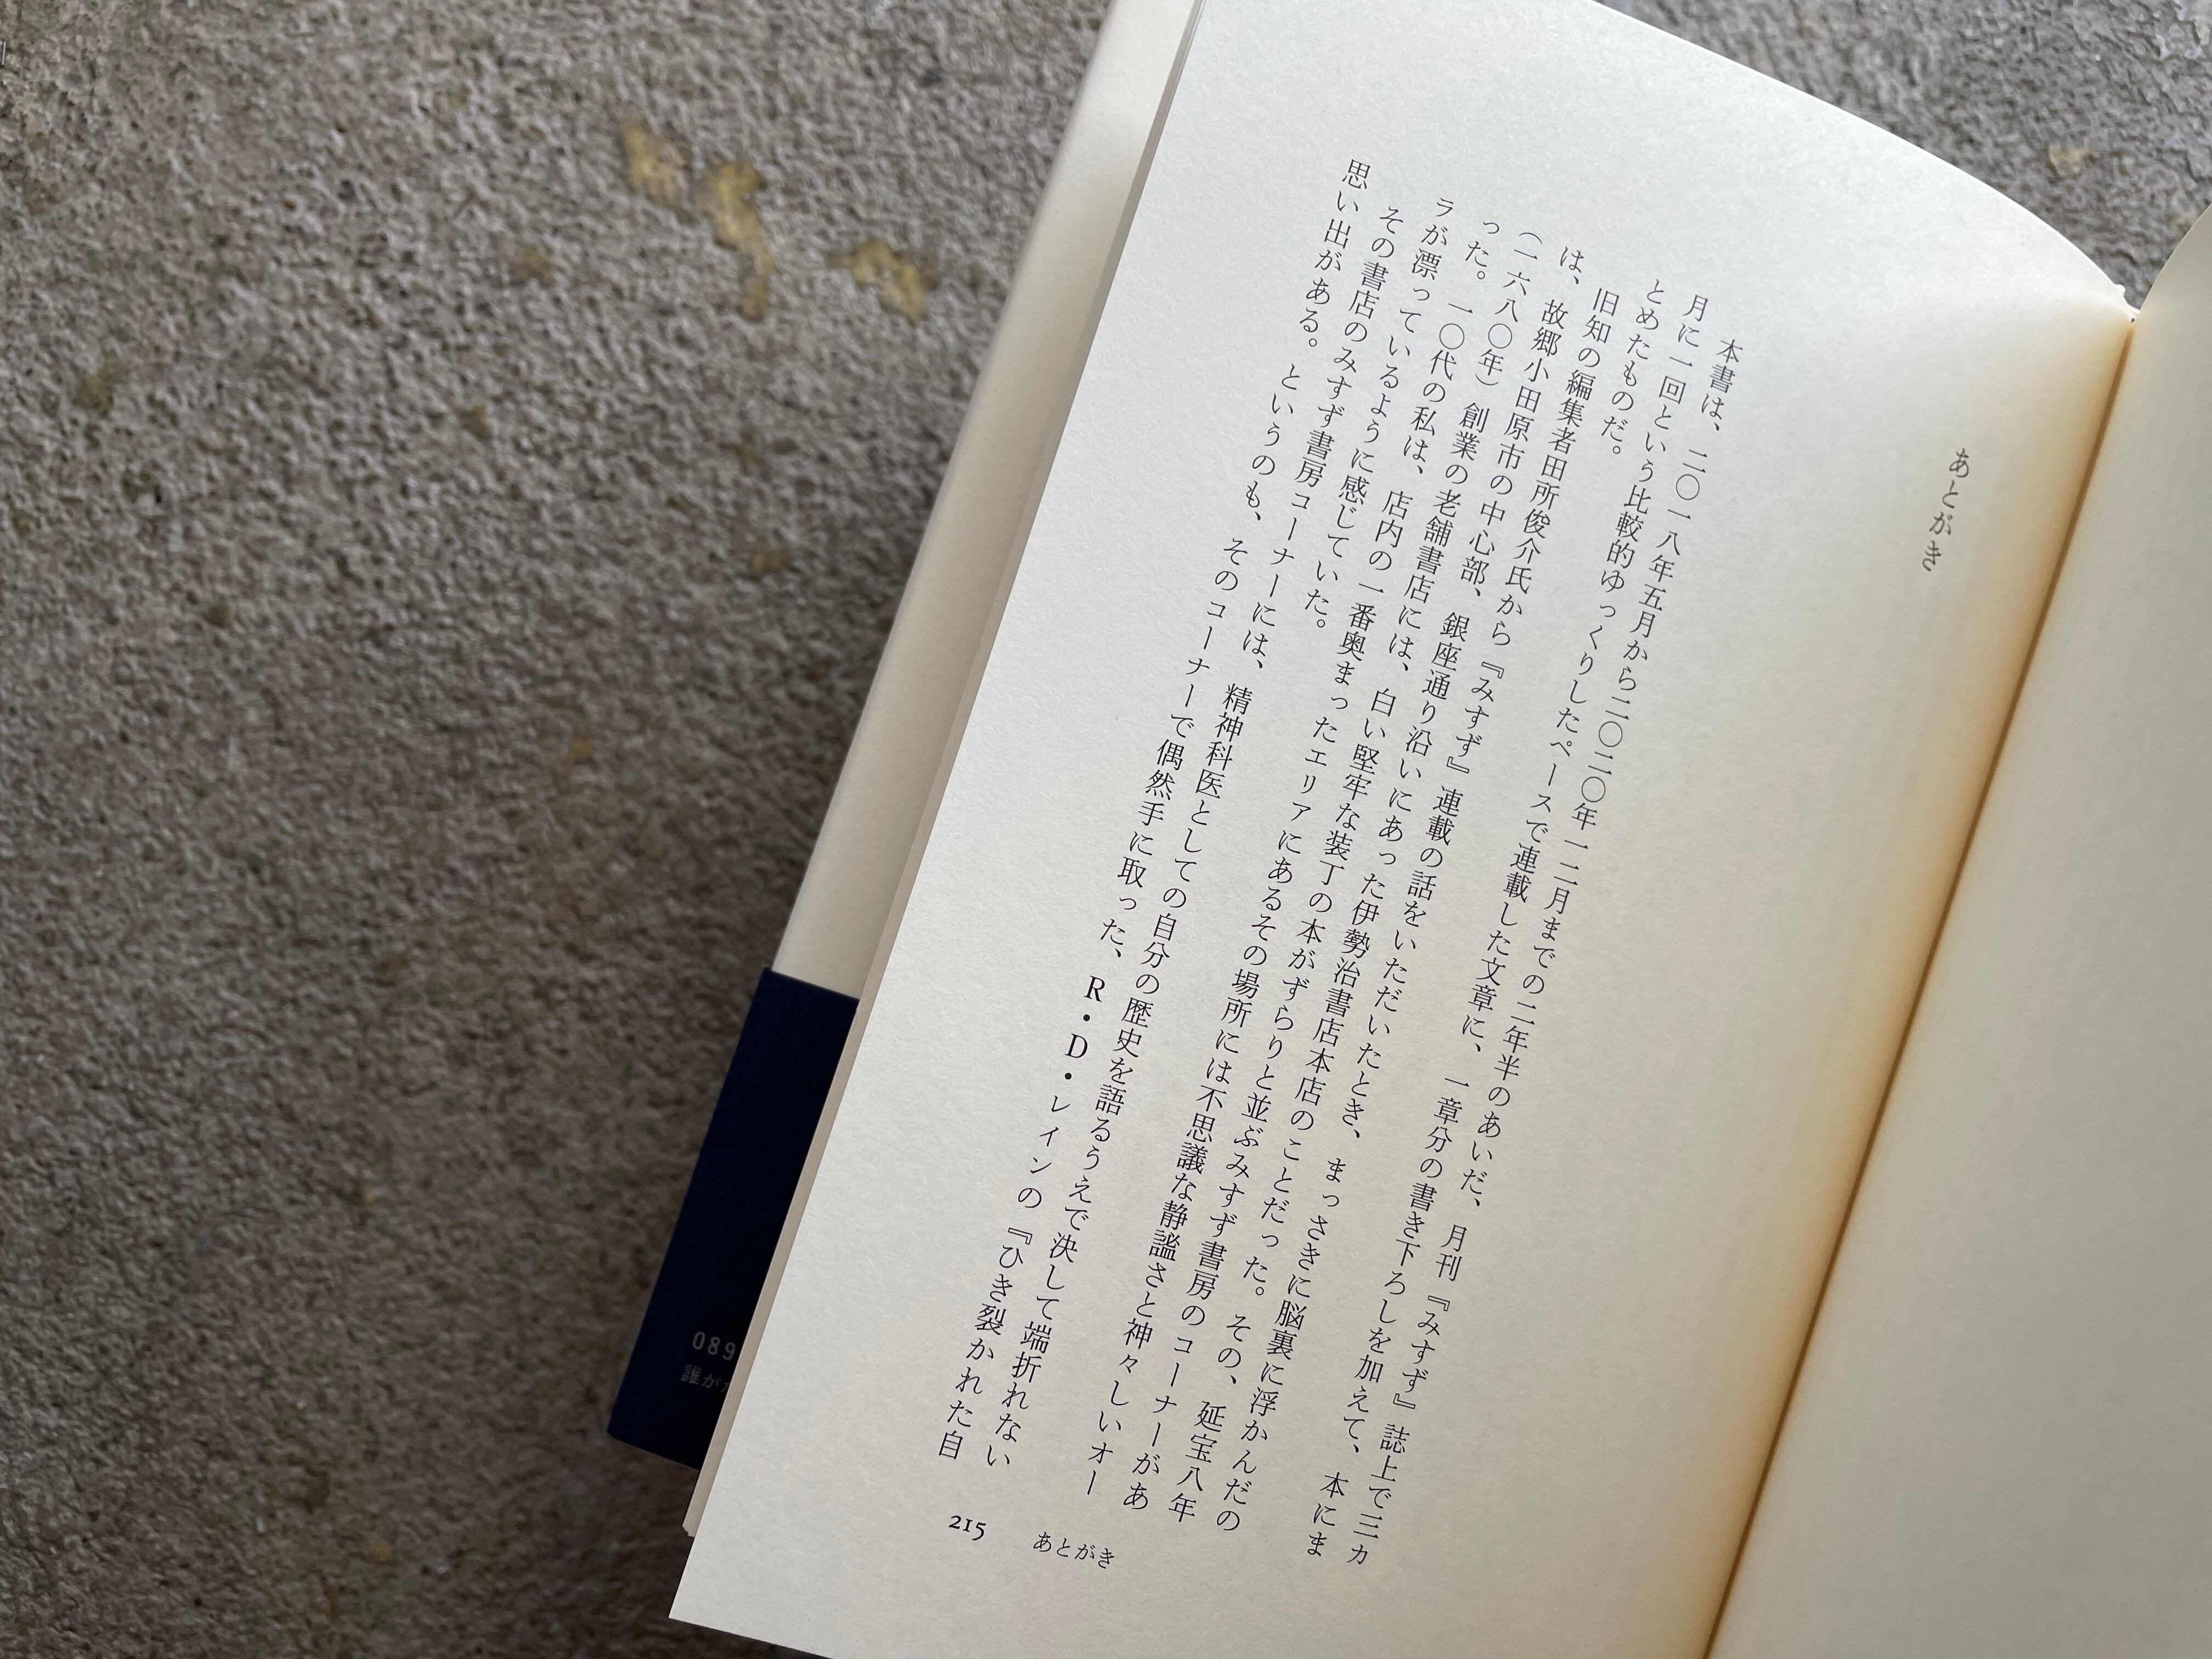 あとがき
本書は、二〇一八年五月から二〇二〇年一二月までの二年半のあいだ、月刊『みすず』誌上で三カ
月に一回という比較的ゆっくりしたペースで連載した文章に、一章分の書き下ろしを加えて、本にま
とめたものだ。
旧知の編集者田所俊介氏から『みすず』連載の話をいただいたとき、まっさきに脳裏に浮かんだの
は、故郷小田原市の中心部、銀座通り沿いにあった伊勢治書店本店のことだった。その、延宝八年
（一六八〇年）創業の老舗書店には、白い堅牢な装丁の本がずらりと並ぶみすず書房のコーナーがあ
った。一〇代の私は、店内の一番奥まったエリアにあるその場所には不思議な静謐さと神々しいオー
ラが漂っているように感じていた。
その書店のみすず書房コーナーには、精神科医としての自分の歴史を語るうえで決して端折れない
思い出がある。というのも、そのコーナーで偶然手に取った、R・D・レインの『ひき裂かれた自
215 あとがき
089
誰が